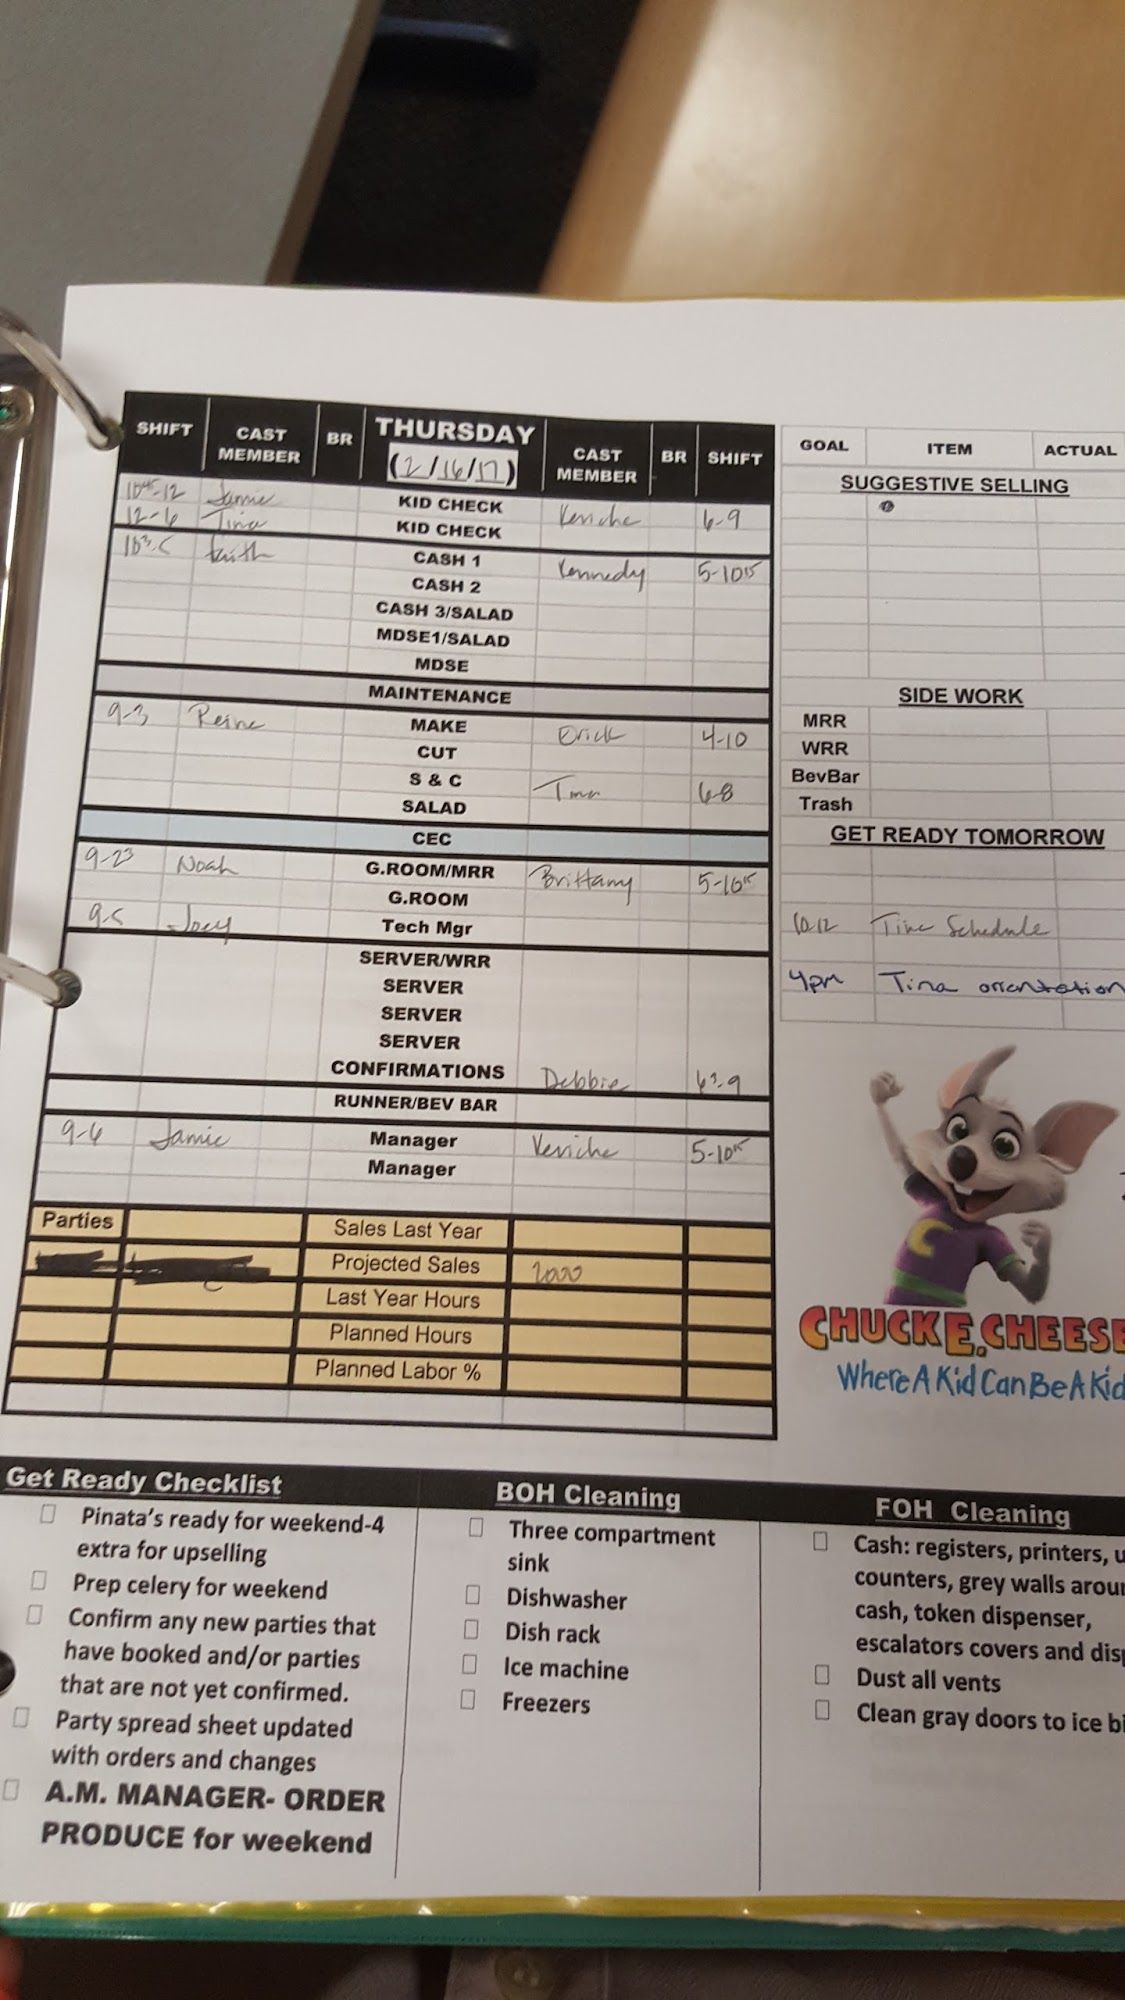 SHIFT CAST MEMBER BR THURSDAY CAST MEMBER BR SHIFT
(2/16/17)
1045-12 Jamie KID CHECK
12-6 Tina KID CHECK Keniche 6-9
103-5 Faith CASH 1 Kennedy 5-1015
CASH 2
CASH 3/SALAD
MDSE1/SALAD
MDSE
MAINTENANCE
9-3 MAKE Erick 4-10
CUT
S & C 6-8
SALAD
CEC
9-23 Noah G.ROOM/MRR Brittany 5-1015
G.ROOM
9-5 Joey Tech Mgr
SERVER/WRR
SERVER
SERVER
SERVER
CONFIRMATIONS Debbie 63-9
RUNNER/BEV BAR
9-6 Jamie Manager Keniche 5-1015
Manager
Parties Sales Last Year
Projected Sales 2000
Last Year Hours
Planned Hours
Planned Labor %
GOAL ITEM ACTUAL
SUGGESTIVE SELLING
SIDE WORK
MRR
WRR
BevBar
Trash
GET READY TOMORROW
10-12 Schedule
4pm Tina orientation
CHUCK E. CHEESE
Where A Kid Can Be A Kid
Get Ready Checklist
Pinata's ready for weekend-4
extra for upselling
Prep celery for weekend
Confirm any new parties that
have booked and/or parties
that are not yet confirmed.
Party spread sheet updated
with orders and changes
A.M. MANAGER- ORDER
PRODUCE for weekend
BOH Cleaning
Three compartment
sink
Dishwasher
Dish rack
Ice machine
Freezers
FOH Cleaning
Cash: registers, printers,
counters, grey walls
cash, token dispenser,
escalators covers and
Dust all vents
Clean gray doors to ice